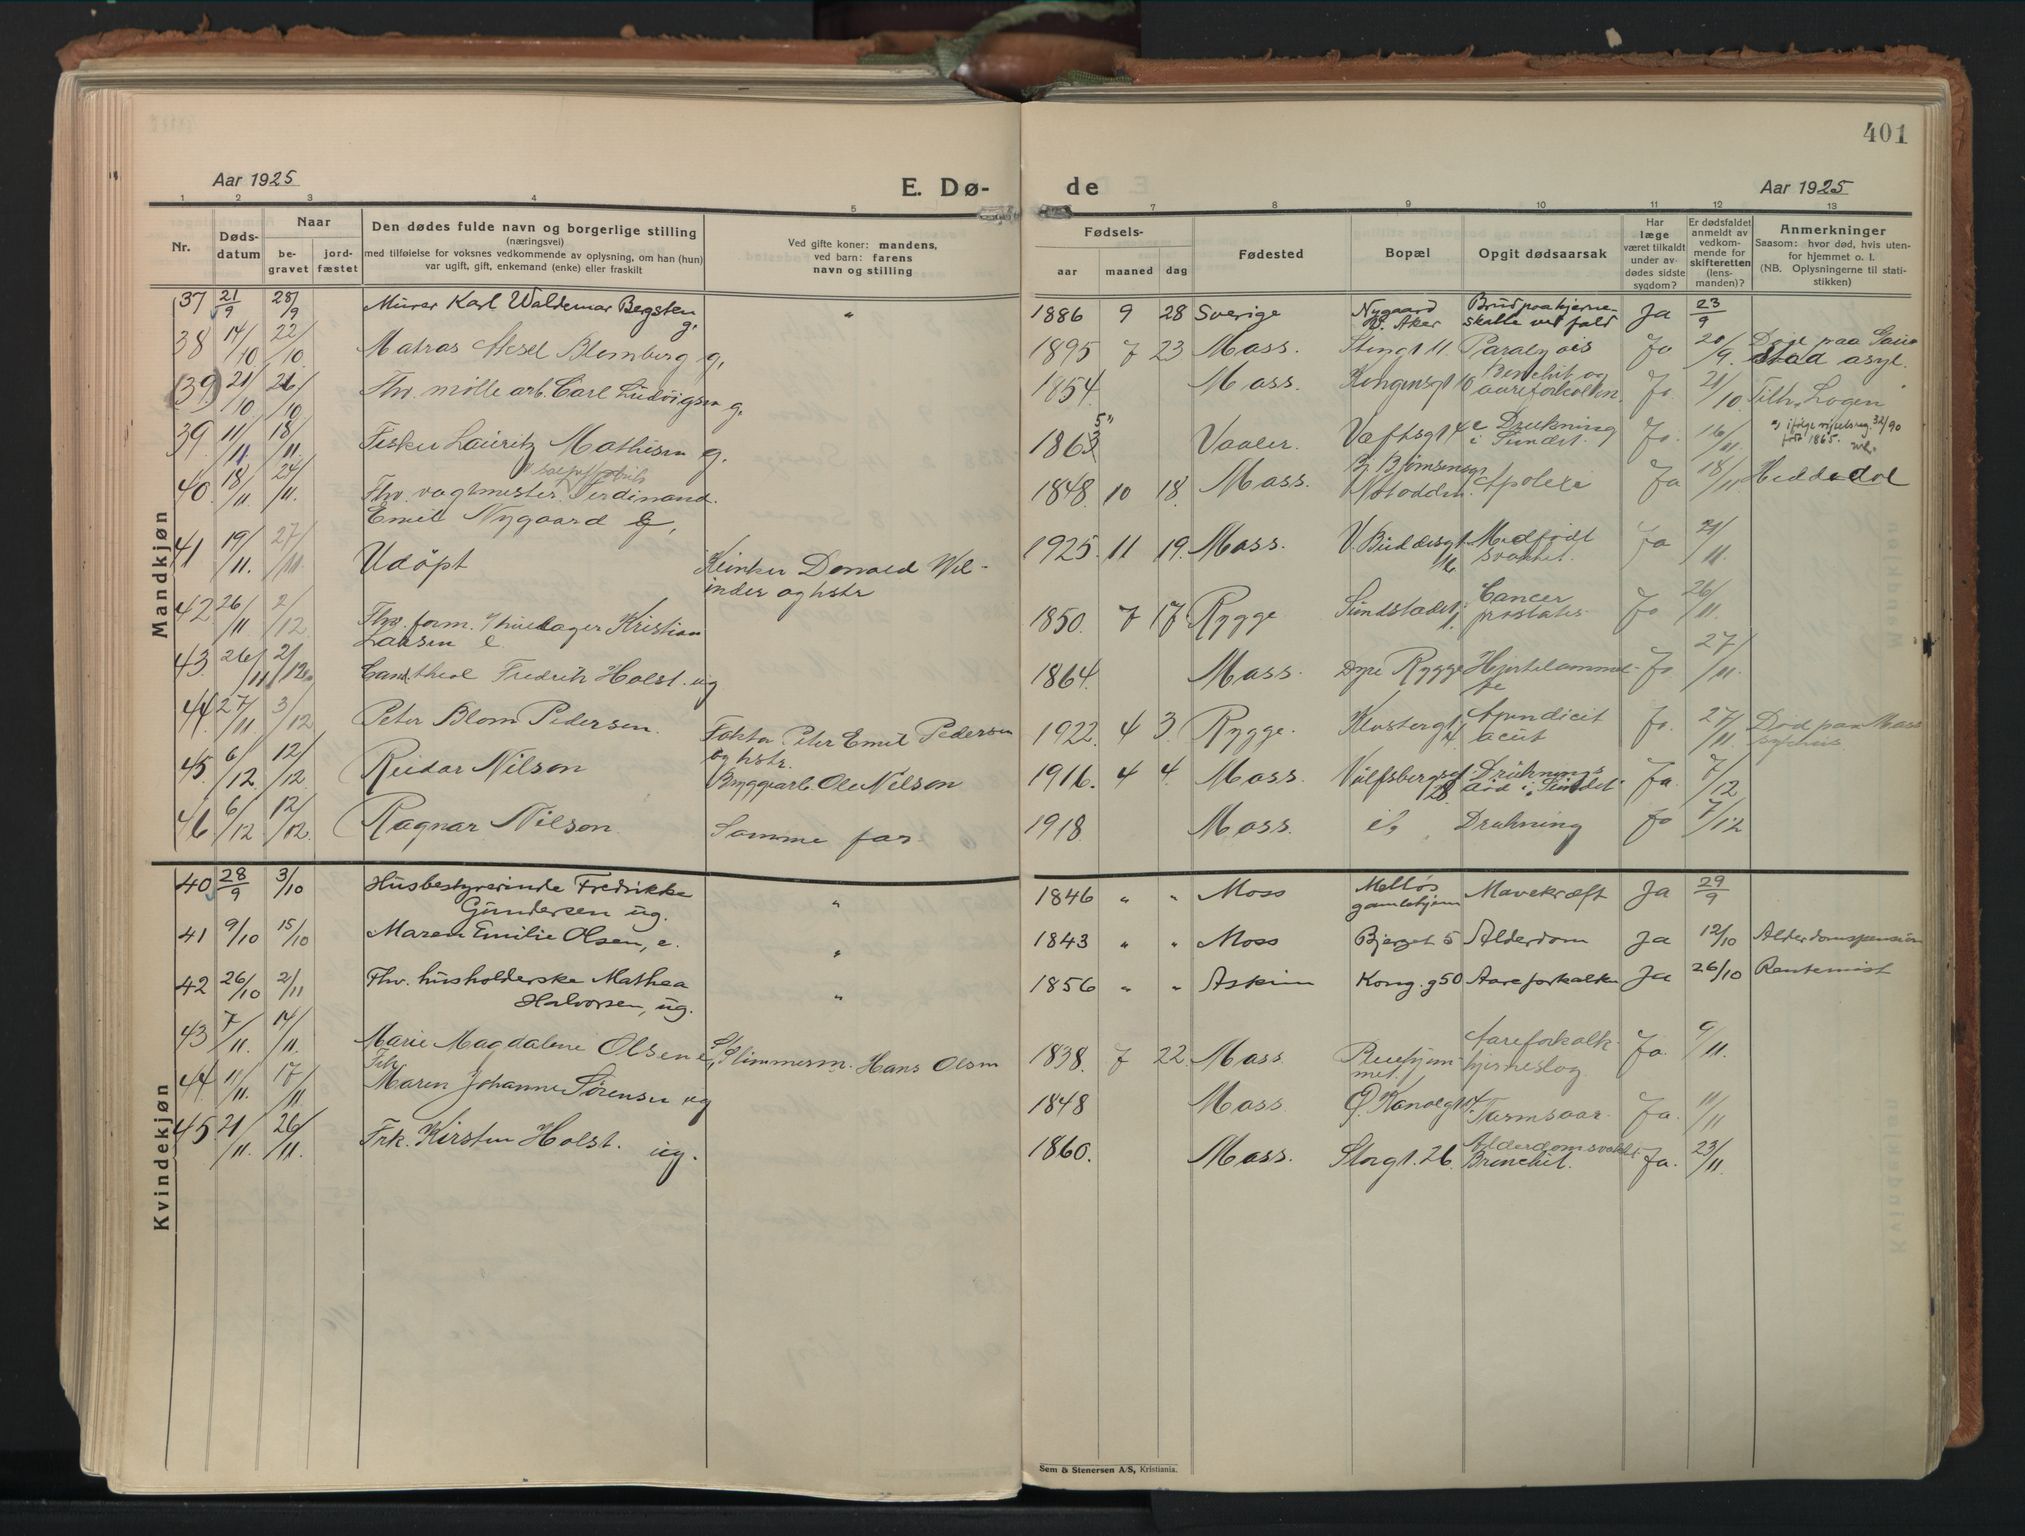 401
Aar 1925
E. Dø-
de
Aar 1925
1 2 3 4 5 7 8 9 10 11 12 13
Nr.
Døds-
datum
Naar
be-
gravet
jord-
fæstet
Den dødes fulde navn og borgerlige stilling
(næringsvei)
med tilføielse for voksnes vedkommende av oplysning, om han (hun)
var ugift, gift, enkemand (enke) eller fraskilt
Ved gifte koner: mandens,
ved barn: farens
navn og stilling
Fødsels-
aar maaned dag
Fødested
Bopæl
Opgit dødsaarsak
Har
læge
været tilkaldt
under av-
dødes sidste
sygdom?
Er dødsfaldet
anmeldt av
vedkom-
mende for
skifteretten
(lens-
manden)?
Anmerkninger
Saasom: hvor død, hvis uten-
for hjemmet o. l.
(NB. Oplysningerne til stati-
stikken)
Mandkjøn
37 21/9 28/9 Murer Karl Waldemar Bergsten g. „ 1886 9 28 Sverige Nygaard Aker Brud paa hjerne-
skalle ved fald Ja 23/9
38 14/10 22/10 Matros Aksel Blomberg g, 1895 7 23 Moss. Paralysis Ja
Død paa Gau
stad asyl.
(39) 21/10 26/10 Fhv. mølle arb. Carl Ludvigsen g. 1854. Moss. Kongensgt 10 Bronchit og
aareforkalkn. Ja. 21/10
39. 11/11 18/11 Fisker Lauritz Mathisen g. 1863 5 Vaaler. Drukning
i Sundet. Ja. 16/11 født 1865.
40. 18/11 24/11 Fhv. vagtmester Ferdinand
Emil Nygaard 1848. 10 18. Moss. Notodden. Apolexi Ja 18/11 Heddedal
41 19/11. 27/11 Udøpt Donald
og hstr 1925. 11 19. Moss. Medfødt
svakhet. Ja 21/11.
42. 26/11 2/12. Fhv. form. Kristian
Larsen e. 1850. 7 17 Rygge Cancer
prostates Ja 26/11.
43. 26/11 2/12 Cand. theol Fredrik Holst. ug 1864. Moss. Rygge Hjertelammel-
se Ja 27/11.
44. 27/11 3/12 Peter Blom Pedersen. Faktor Peter Emil Pedersen
og hstr. 1922. 4 3. Rygge. Klostergt. Apendicit
acut Ja. 27/11. Død paa Moss
sykehus.
45. 6/12. 12/12. Reidar Nilson Bryggearb. Ole Nilson 1916. 4 4. Moss. Vulfsbergsgt.
28. Druknings
død i Sundet. Ja. 7/12
46 6/12. 12/12. Ragnar Nilson. Samme far. 1918. Moss. Drukning Ja 7/12
Kvindekjøn
40 28/9 3/10 Husbestyrerinde Fredrikke
Gundersen ug. „ 1846 „ „ Moss Melløs
gamlehjem Mavekræft Ja 29/9
41 9/10 15/10 Maren Emilie Olsen, e. „ 1843 „ „ Moss Bjerget 5 Alderdom Ja 12/10 Alderdomspension
42 26/10 2/11 Fhv. husholderske Mathea
Halvorsen, ug. „ 1856 „ „ Askim Kong. g 50 Aareforkalkn Ja 26/10 Rentenist
43 7/11. 14/11. Marie Magdalene Olsen e, Hans Olsen 1838. 7 22. Moss. Pleiehjem-
met. Aareforkalk-
hjerneslag Ja. 9/11.
44. 11/11. 17/11. Frk
Maren Johanne Sørensen ug 1848 Moss. Ø. Kanalgt 4. Tarmsaar. Ja. 11/11
45. 21/11. 26/11. Frk. Kirsten Holst. ug. 1860. Moss. Storgt. 26. Alderdomsvakh.
Bronchit. Ja. 23/11.
Sem & Stenersen A/S, Kristiania.